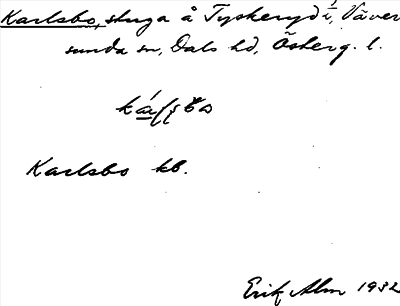 Karlsbo, stuga å Tyskeryd i, Väver
sunda sn, Dals hd, Österg. l.
Karlsbo kb.
Erik Alm 1932